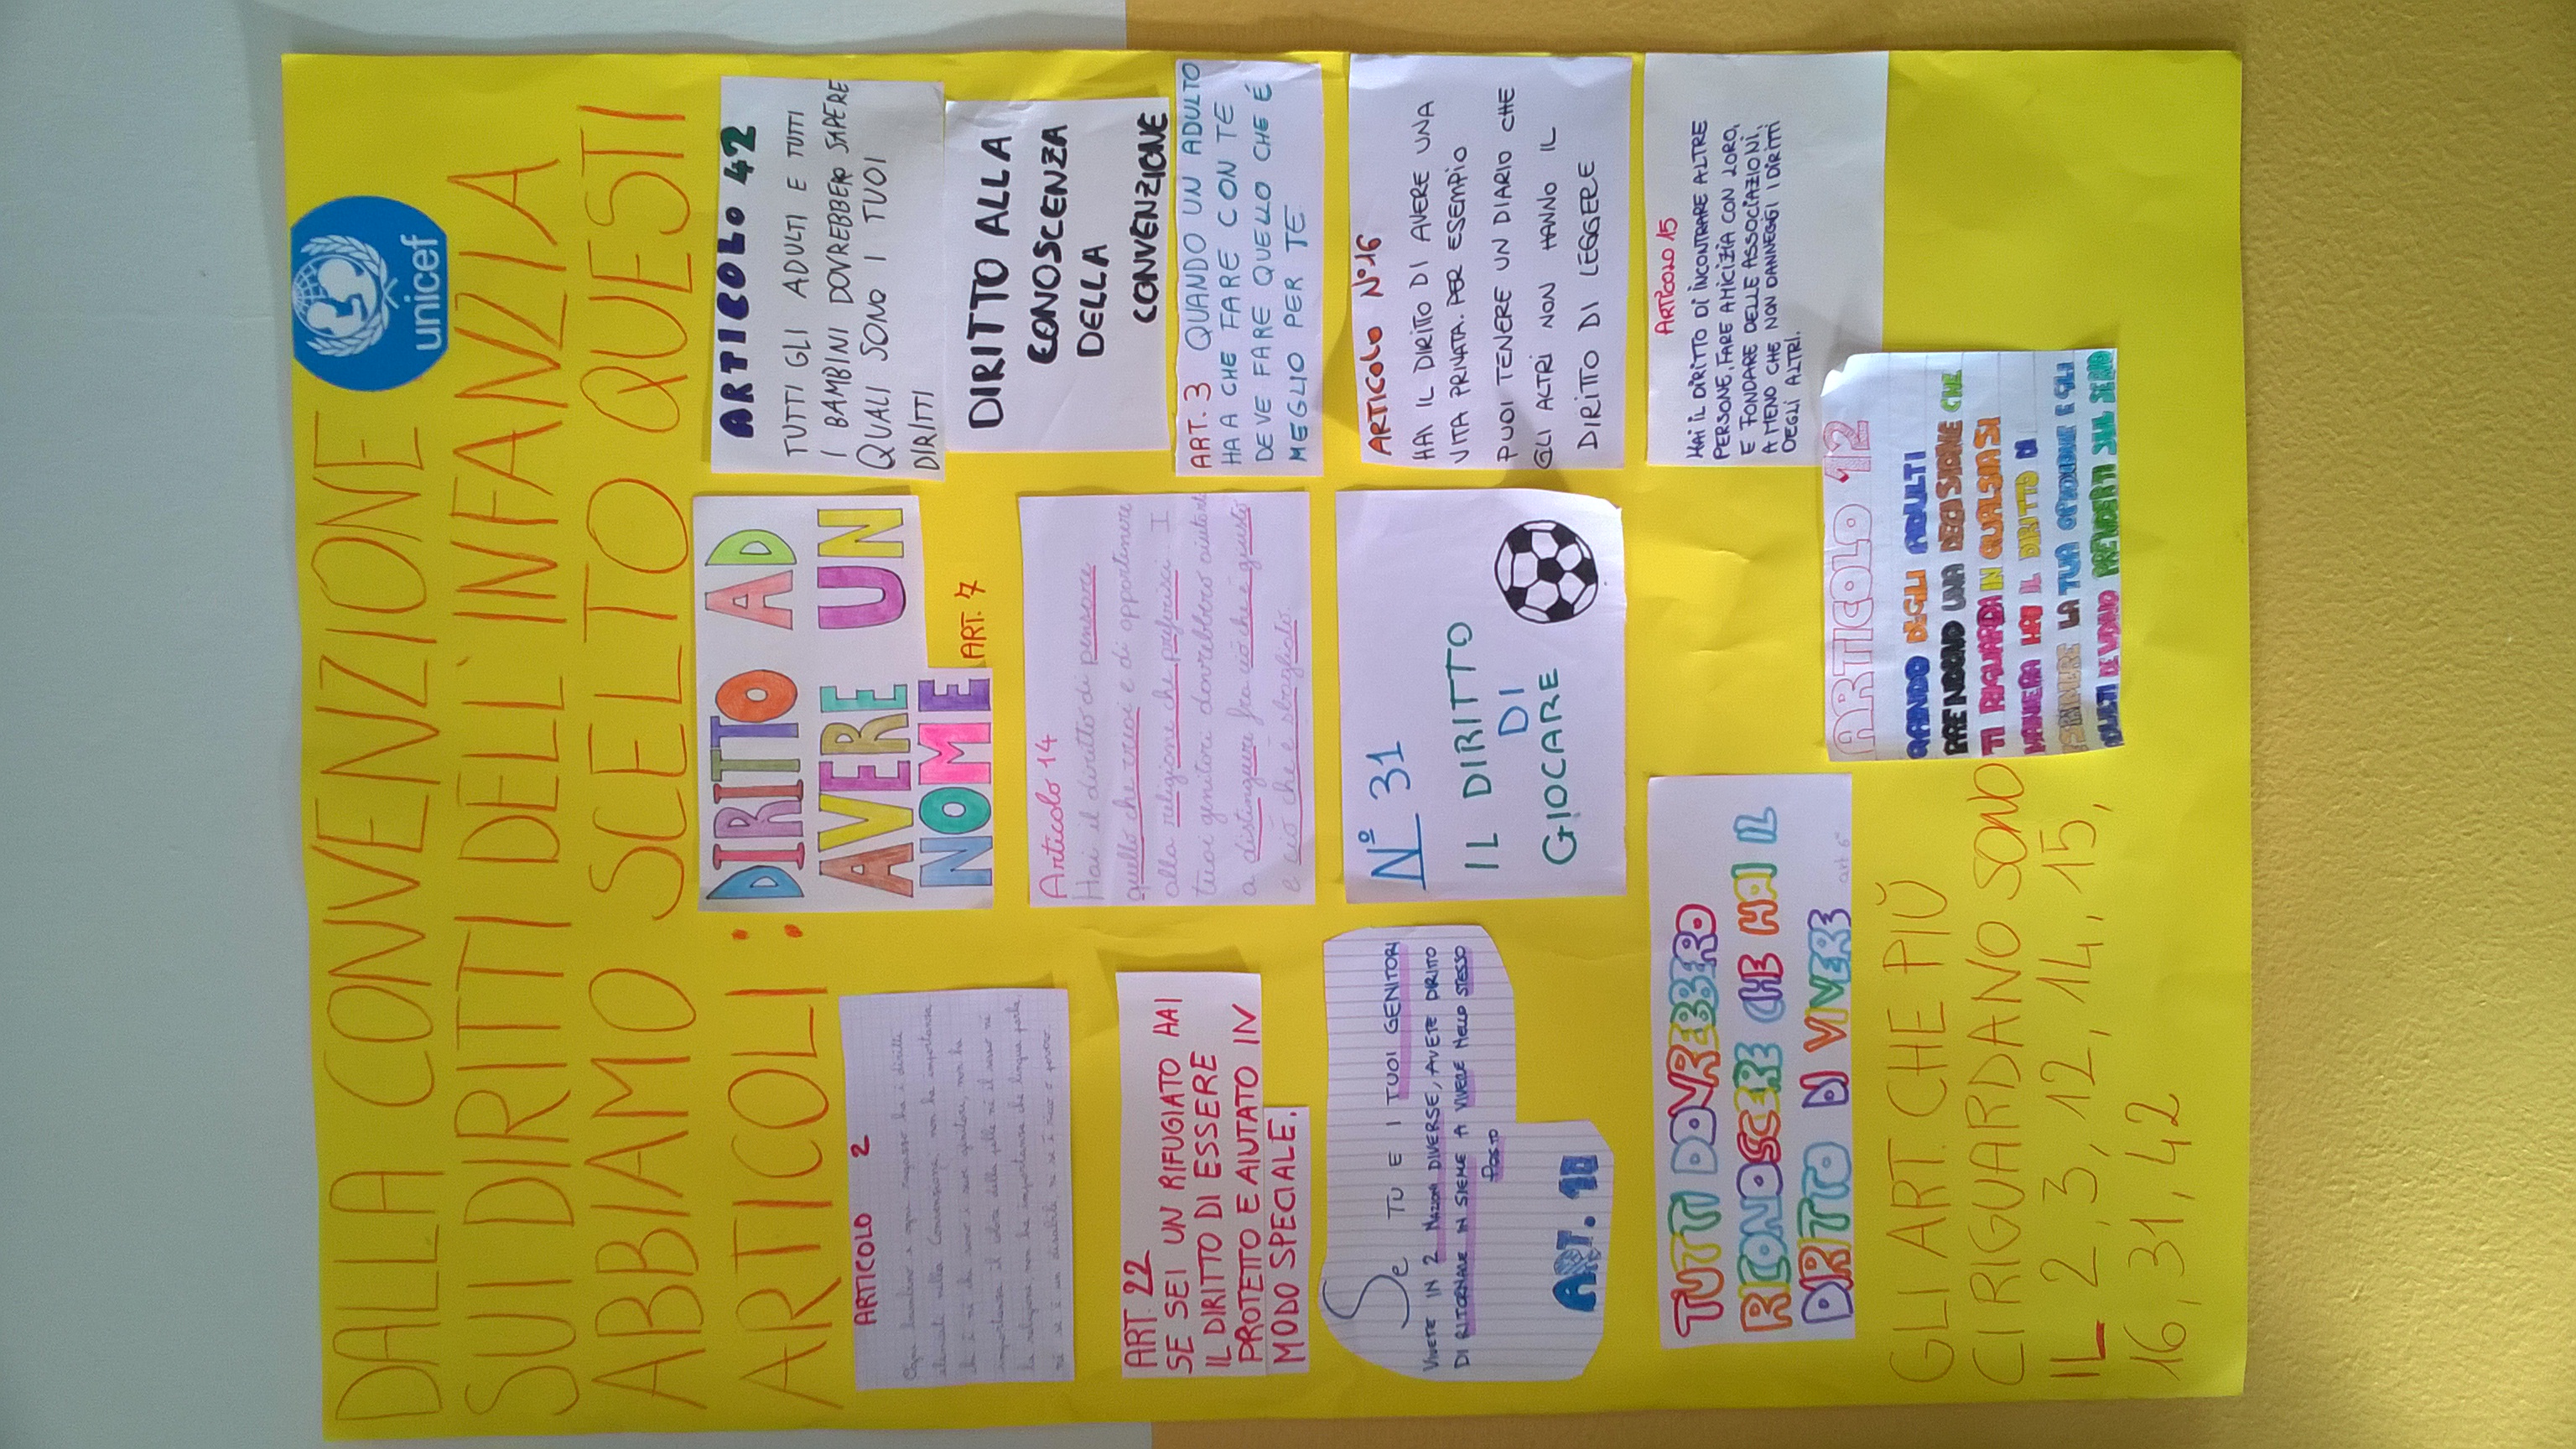 DALLA CONVENZIONE
unicef
SUI DIRITTI DELL'INFANZIA
ABBIAMO SCELTO QUESTI
ARTICOLI:
ARTICOLO 2
Ogni bambino e ogni ragazzo ha i diritti
elencati nella Convenzione, non ha importanza
chi è né chi sono i suoi genitori, non ha
importanza il colore della pelle né il sesso né
la religione non ha importanza che lingua parla,
né se è un disabile, né se è ricco o povero.
ART. 22
SE SEI UN RIFUGIATO HAI
IL DIRITTO DI ESSERE
PROTETTO E AIUTATO IN
MODO SPECIALE.
Se TU E I TUOI GENITORI
VIVETE IN 2 NAZIONI DIVERSE, AVETE DIRITTO
DI RITORNARE INSIEME A VIVERE NELLO STESSO
POSTO
ART. 10
TUTTI DOVREBBERO
RICONOSCERE CHE HAI IL
DIRITTO DI VIVERE
art 6
DIRITTO AD
AVERE UN
NOME
ART. 7
Articolo 14
Hai il diritto di pensare
quello che vuoi e di appartenere
alla religione che preferisci. I
tuoi genitori dovrebbero aiutarti
a distinguere fra ciò che è giusto
e ciò che è sbagliato.
N° 31
IL DIRITTO
DI
GIOCARE
ARTICOLO 12
QUANDO DEGLI ADULTI
PRENDONO UNA DECISIONE CHE
TI RIGUARDA IN QUALSIASI
MANIERA HAI IL DIRITTO DI
ESPRIMERE LA TUA OPINIONE E GLI
ADULTI DEVONO PRENDERTI SUL SERIO
ARTICOLO 42
TUTTI GLI ADULTI E TUTTI
I BAMBINI DOVREBBERO SAPERE
QUALI SONO I TUOI
DIRITTI
DIRITTO ALLA
CONOSCENZA
DELLA
CONVENZIONE
ART. 3 QUANDO UN ADULTO
HA A CHE FARE CON TE
DEVE FARE QUELLO CHE É
MEGLIO PER TE
ARTICOLO N°16
HAI IL DIRITO DI AVERE UNA
VITA PRIVATA. PER ESEMPIO
PUOI TENERE UN DIARIO CHE
GLI ALTRI NON HANNO IL
DIRITTO DI LEGGERE
ARTICOLO 15
HAI IL DIRITTO DI INCONTRARE ALTRE
PERSONE, FARE AMICIZIA CON LORO,
E FONDARE DELLE ASSOCIAZIONI,
A MENO CHE NON DANNEGGI I DIRITTI
DEGLI ALTRI.
GLI ART. CHE PIÙ
CI RIGUARDANO SONO
IL 2, 3, 12, 14, 15,
16, 31, 42